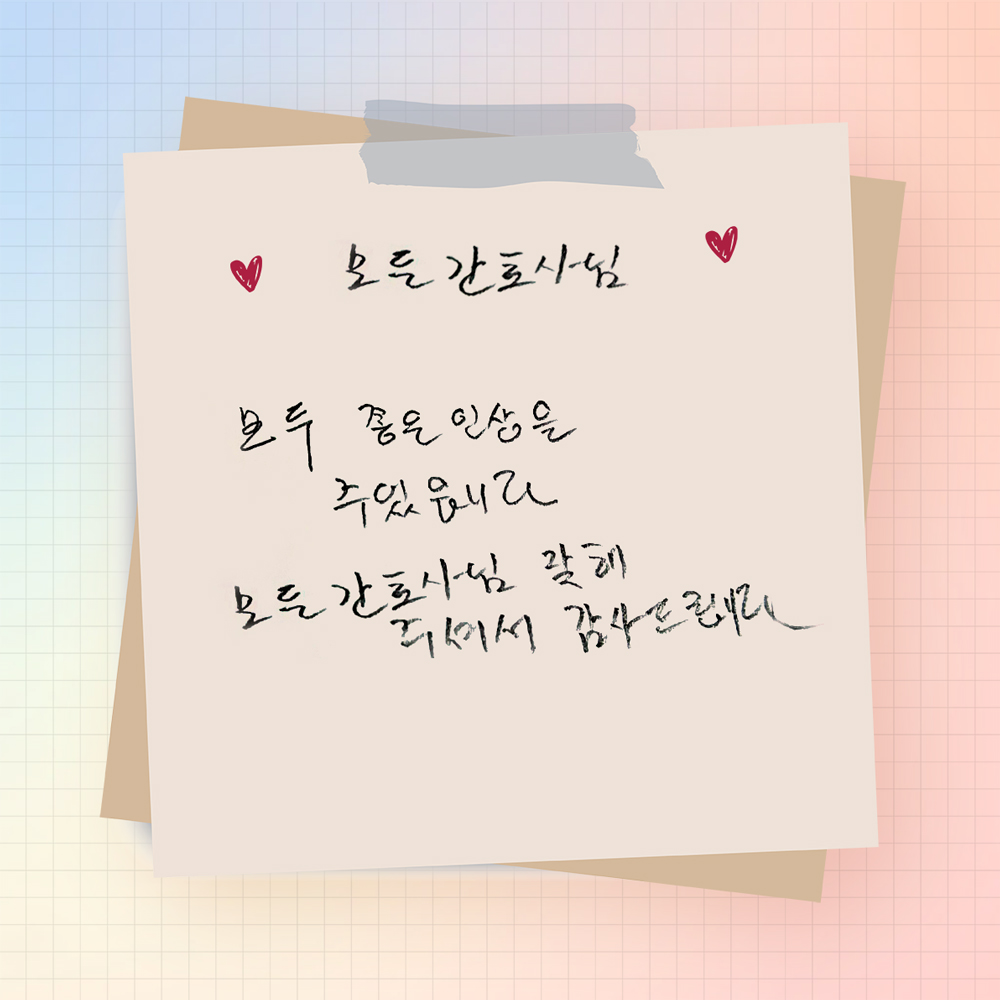 모든 간호사님
모두 좋은 인상을
주있읍니다
모든 간호사님 잘해
주셔서 감사드립니다